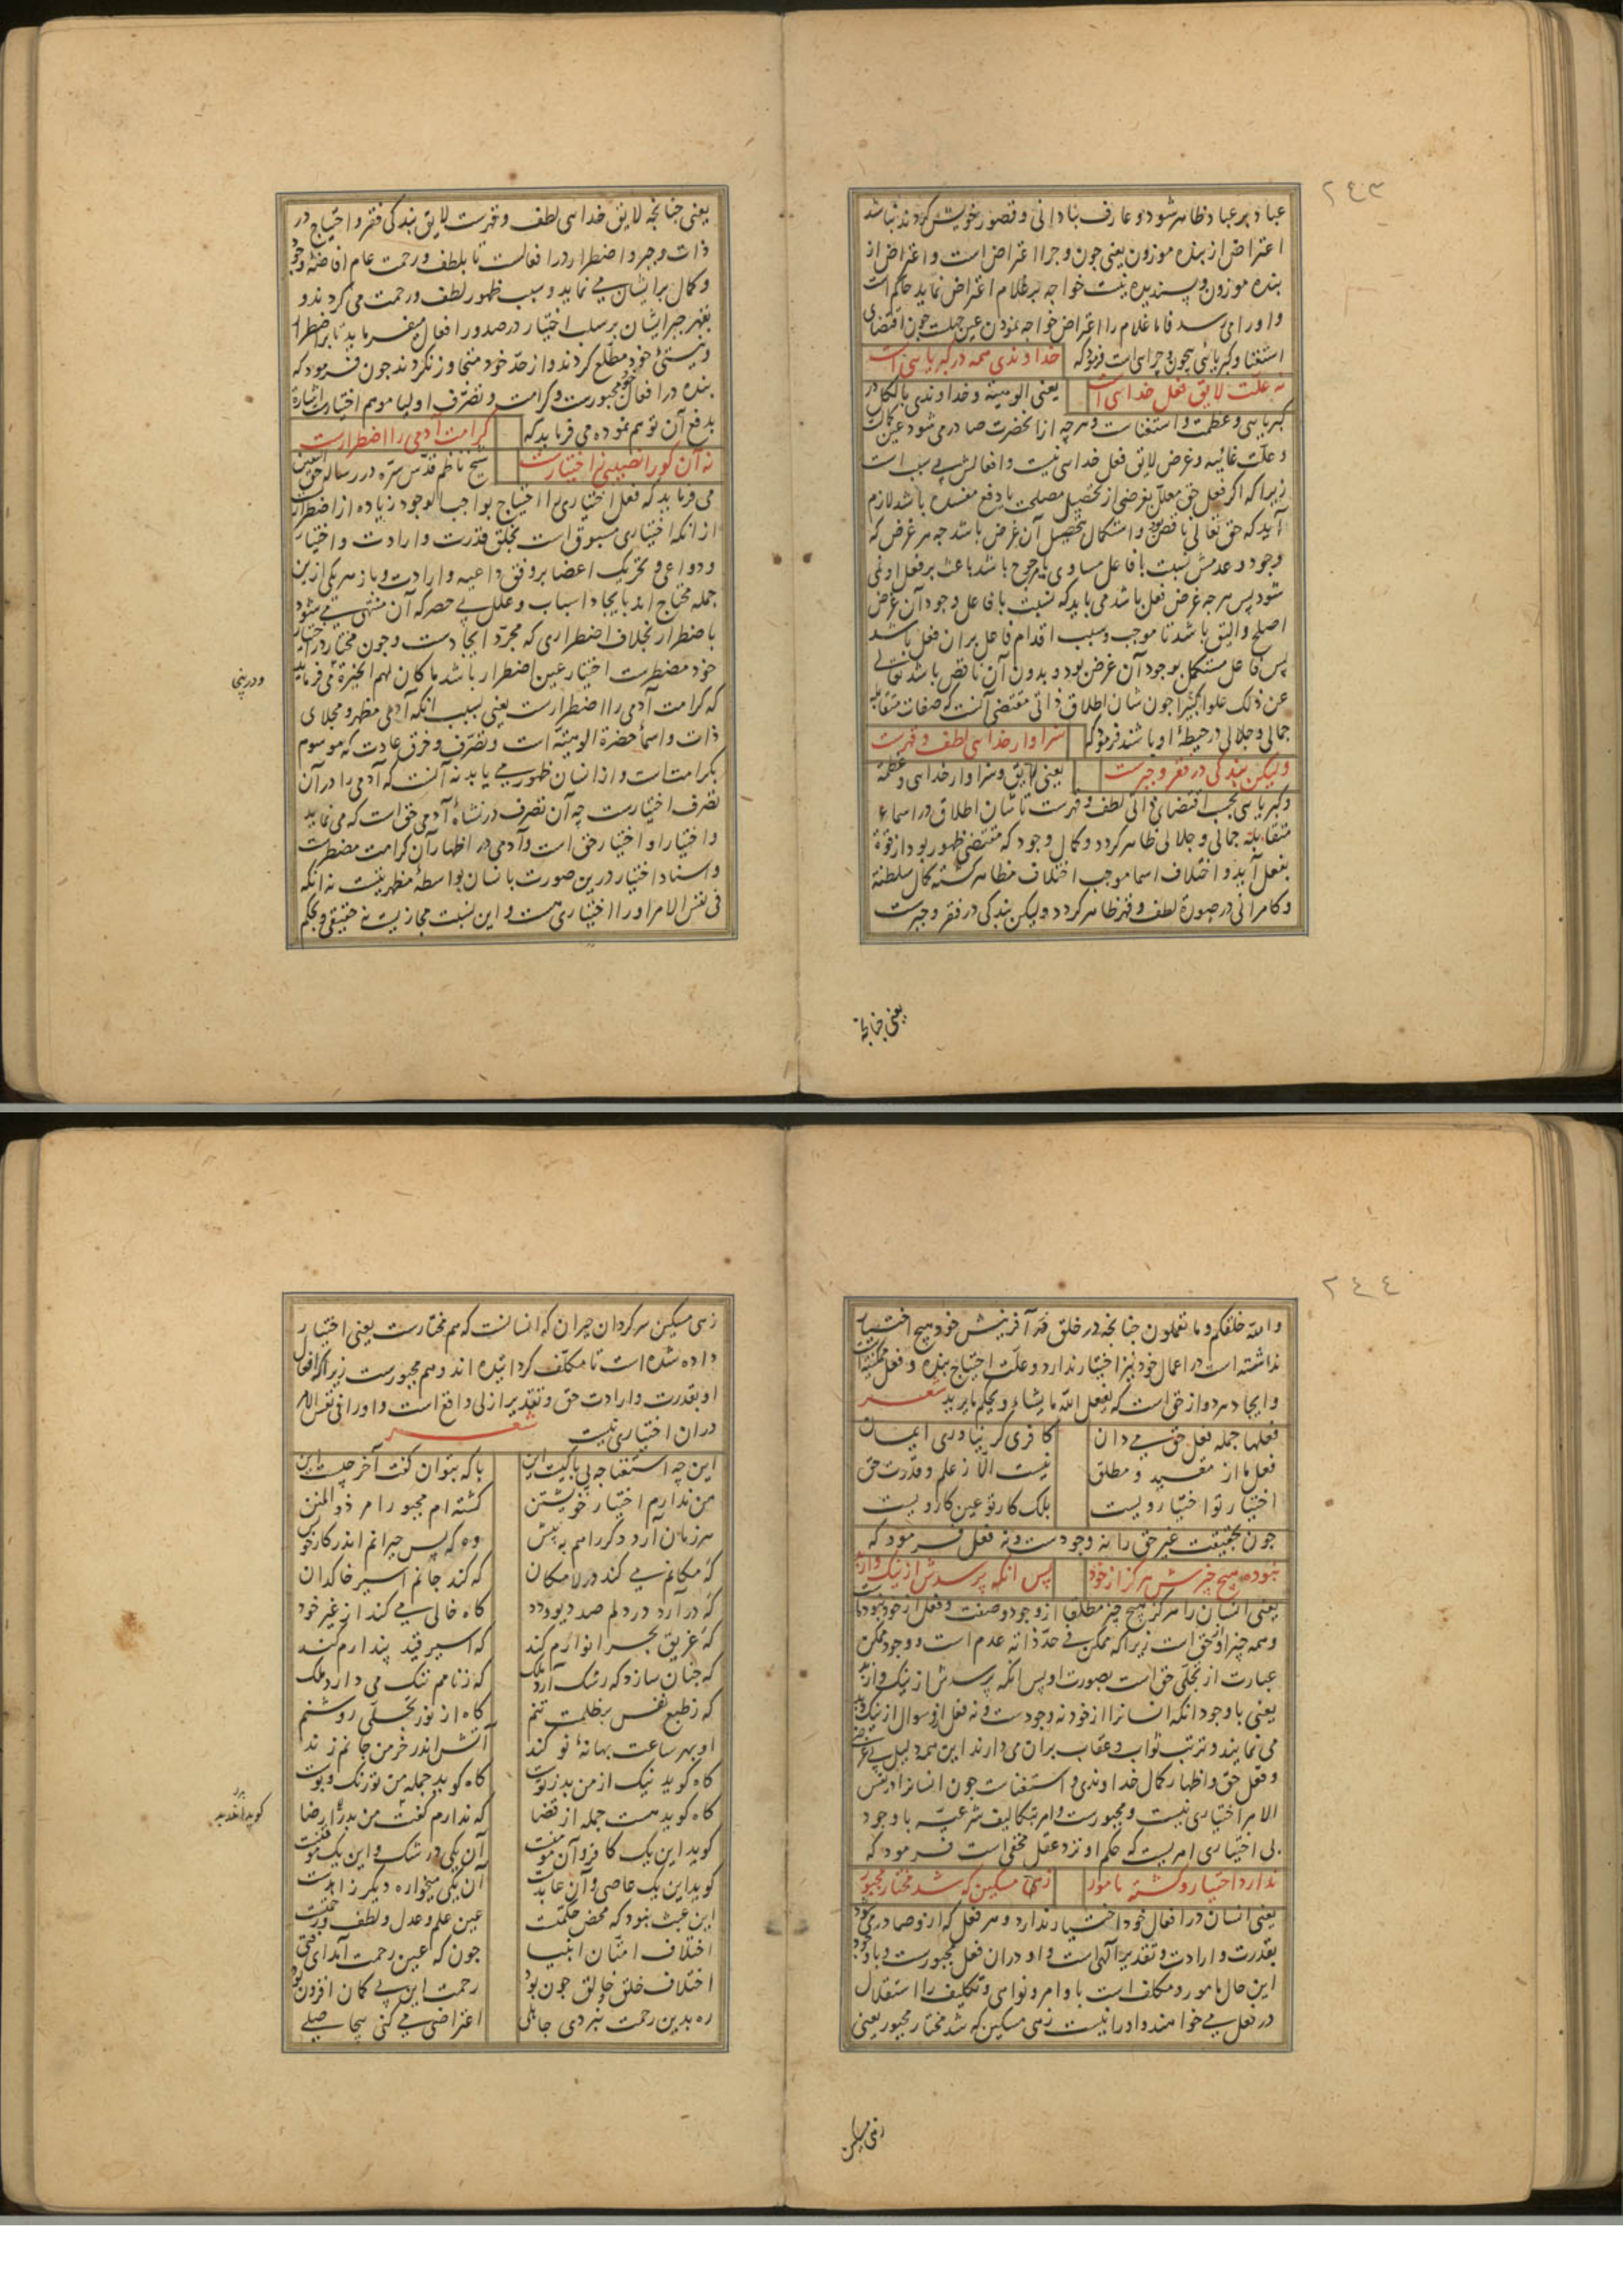 ٢٤٣
عباد بر عباد ظاهر شود و عارف بنادانی و قصور خویش کردند نباشد
اعتراض از بنده موزون یعنی چون و چرا اعتراض است و اعتراض از
بنده موزون و پسندیده نیست خواجه بر غلام اعتراض نماید حاکم است
و او را می رسد فاما غلام را اعتراض خواجه نمودن عین جهلست چون اقتضای
استغنا و کبریائی بیچون و چراست فرمود که خداوندی همه در کبریاییست
نه علت لایق فعل خداییست یعنی الوهیة و خداوندی بالکل در
کبریایی و عظمت و استغناست و هر چه از آنحضرت صادر می شود عین
و علت غائیه و غرض لایق فعل خدایی نیست و افعالش بی سبب است
زیرا که اگر فعل حق معلل بغرضی از تحصیل مصلحت یا دفع مفسده باشد لازم
آید که حق تعالی ناقص بود و استکمال بتحصیل آن غرض باشد چه هر غرض که
وجود و عدمش نسبت با فاعل مساوی یا مرجوح باشد باعث بر فعل او نمی
شود پس هر چه غرض فعل باشد می باید که نسبت با فاعل وجود آن غرض
اصلح و الیق باشد تا موجب و سبب اقدام فاعل بر آن فعل باشد
پس فاعل مستکمل بوجود آن غرض بود و بدون آن ناقص باشد تعالی
عن ذلک علوا کبیرا چون شان اطلاق ذاتی مقتضی آنست که صفات متقابله
جمالی و جلالی در حیطه او باشند فرمود که سزاوار خدایی لطف و قهرست
ولیکن بندگی در فقر و جبرست یعنی لایق و سزاوار خدایی و عظمة
و کبریایی بحسب اقتضای ذاتی لطف و قهرست تا شان اطلاق در اسماء
متقابله جمالی و جلالی ظاهر گردد و کمال وجود که مقتضی ظهور بود از قوة
بفعل آید و اختلاف اسما موجب اختلاف مظاهر گشته کمال سلطنة
و کامرانی در صورة لطف و قهر ظاهر گردد ولیکن بندگی در فقر و جبرست
یعنی چنانچه
یعنی چنانچه لایق خدایی لطف و قهرست لایق بندگی فقر و احتیاج در
ذات و جبر و اضطرار در افعالست تا بلطف و رحمت عام افاضه وجود
و کمال بر ایشان می نماید و سبب ظهور لطف و رحمت می گردند و
بقهر جبر ایشان بر سلب اختیار در صدور افعال می فرماید تا بر اضطرار
و نیستی خود مطلع گردند و از حد خود متجاوز نگردند چون فرمود که
بنده در افعال خود مجبورست و کرامت و تصرف اولیا موهم اختیارست اشارة
بدفع آن توهم نموده می فرماید که کرامت آدمی را اضطرارست
نه آن کو را نصیبی ز اختیارست شیخ ناظم قدس سره در رساله حق الیقین
می فرماید که فعل اختیاری را احتیاج بواجب الوجود زیاده از اضطراریست
از آنکه اختیاری مسبوق است بخلق قدرت و ارادت و اختیار
و دواعی و تحریک اعضا بر وفق داعیه و ارادت و باز هر یکی ازین
جمله محتاج اند بایجاد اسباب و علل بی حصر که آن منتهی می شود
باضطرار بخلاف اضطراری که مجرد ایجادست و چون مختار در اختیار
خود مضطرست اختیار عین اضطرار باشد ما کان لهم الخیرة می فرماید
که کرامت آدمی را اضطرارست یعنی بسبب آنکه آدمی مظهر و مجلای
ذات و اسماء حضرة الوهیة است و تصرف و خرق عادت که موسوم
بکرامات است و از انسان ظهور می یابد نه آنست که آدمی را در آن
تصرف اختیارست چه آن تصرف در نشاة آدمی حق است که می نماید
و اختیار او اختیار حق است و آدمی در اظهار آن کرامت مضطرست
و اسناد اختیار درین صورت بانسان بواسطه مظهریتست نه آنکه
فی نفس الامر او را اختیاری هست و این نسبت مجازیست نه حقیقی و بحکم
٢٤٤
والله خلقکم وما تعملون چنانچه در خلق و آفرینش خود هیچ اختیار
نداشته است در اعمال خود نیز اختیار ندارد و علت احتیاج بنده و فعل ممکنیتست
و ایجاد هر دو از حق است که یفعل الله ما یشاء و یحکم ما یرید شعر
فعلها جمله فعل حق می دان کافری گر نیاوری ایمان
فعل ما از مقید و مطلق نیست الا ز علم و قدرت حق
اختیار تو اختیار ویست بلک کار تو عین کار ویست
چون بحقیقت غیر حق را نه وجودست و نه فعل فرمود که
نبوده هیچ چیزش هرگز از خود پس آنگه پرسدش از نیک و از بد
یعنی انسان را هرگز هیچ چیز مطلقا از وجود و صفت و فعل از خود نبوده است
و همه چیز او از حق است زیرا که ممکن فی حد ذاته عدم است و وجود ممکن
عبارت از تجلی حق است بصورت او پس آنگه پرسدش از نیک و از بد
یعنی با وجود آنکه انسان را از خود نه وجودست و نه فعل از او سوال از نیک و بد
می نمایند و ترتب ثواب و عقاب بر آن می دارند این همه دلیل بی غرضی
و فعل حق و اظهار کمال خداوندی و استغناست چون انسان را در نفس
الامر اختیاری نیست و مجبورست و امر بتکالیف شرعیه با وجود
بی اختیاری امریست که حکم او نزد عقل مخفی است فرمود که
ندارد اختیار و گشته مامور زهی مسکین که شد مختار مجبور
یعنی انسان در افعال خود اختیار ندارد و هر فعل که از و صادر می شود
بقدرت و ارادت و تقدیر الهی است و او در آن فعل مجبورست و با وجود
این حال مامور و مکلف است باوامر و نواهی و تکلیف را استقلال
در فعل می خواهند و او را نیست زهی مسکین که شد مختار مجبور یعنی
زهی مسکین
زهی مسکین سرگردان حیران که انسانست که هم مختارست یعنی اختیار
داده شده است تا مکلف گردانیده اند و هم مجبورست زیرا که افعال
او بقدرت و ارادت حق و تقدیر ازلی واقع است و او را فی نفس الامر
در آن اختیاری نیست شعر
این چه استغنا چه بی باکیست این با که بتوان گفت آخر چیست این
من ندارم اختیار خویشتن گشته ام مجبور امر ذو المنن
هر زمان آرد دگر راهم به پیش وه که بس حیرانم اندر کار خویش
گه مکانم می کند در لامکان گه کند جانم اسیر خاکدان
گه در آرد در دلم صد دیو و دد گاه خالی می کند از غیر خود
گه غریق بحر انوارم کند گه اسیر قید پندارم کند
گه چنان سازد که رشک آرد ملک گه ز نامم ننگ می دارد ملک
گه ز طبع نفس بر ظلمت تنم گاه از نور تجلی روشنم
او بهر ساعت بهانهٔ نو کند آتش اندر خرمن جانم زند
گاه گوید نیک از من بد ز توست گاه گوید جمله من تو رنگ و بوست
گاه گوید هست جمله از قضا که ندارم گفت من بد را رضا
گوید این یک کافر و آن مومنست آن یکی در شک و این یک موقنست
گوید این یک عاصی و آن عابدست آن یکی میخواره دیگر زاهدست
این عبث نبود که محض حکمتست عین علم و عدل و لطف و رحمتست
اختلاف امتان انبیا چون که عین رحمت آمد ای فتی
اختلاف خلق خالق چون بود رحمت این بی گمان افزون بود
ره بدین رحمت نبردی جاهلی اعتراضی می کنی بیحاصلی